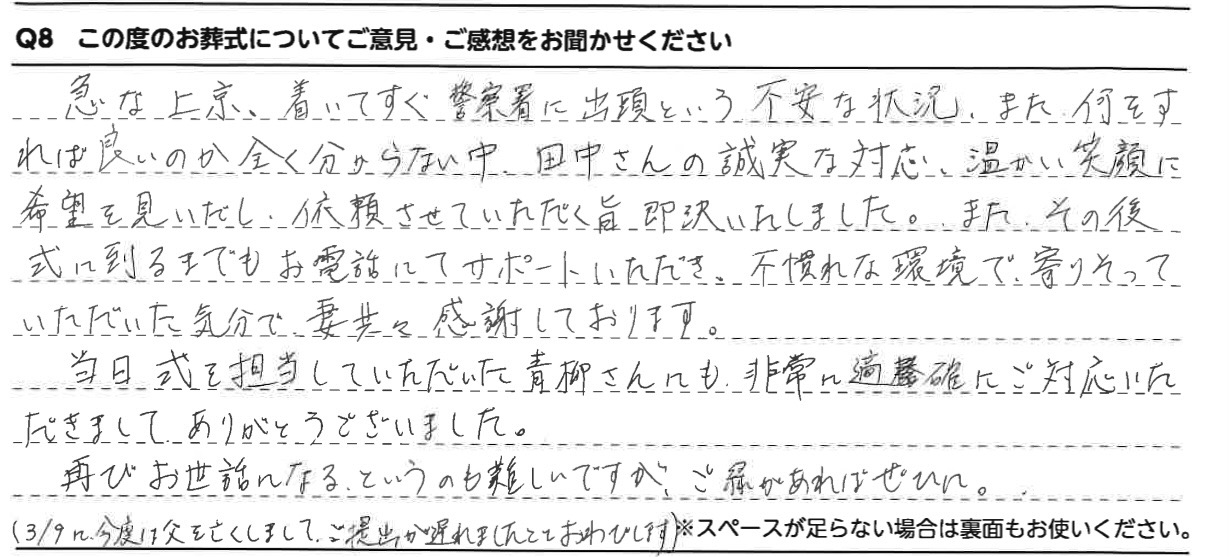 Q8 この度のお葬式についてご意見・ご感想をお聞かせください
急な上京、着いてすぐ警察署に出頭という不安な状況、また、何をす
れば良いのか全く分からない中、田中さんの誠実な対応、温かい笑顔に
希望を見いだし、依頼させていただく旨即決いたしました。また、その後
式に到るまでもお電話にてサポートいただき、不慣れな環境で、寄りそって
いただいた気分で、妻共々感謝しております。
当日式を担当していただいた青柳さんにも、非常に適確にご対応いた
だきまして、ありがとうございました。
再びお世話になる、というのも難しいですが、ご縁があればぜひに。
(3/9に今度は父を亡くしまして、ご提出が遅れましたことおわびします)※スペースが足らない場合は裏面もお使いください。